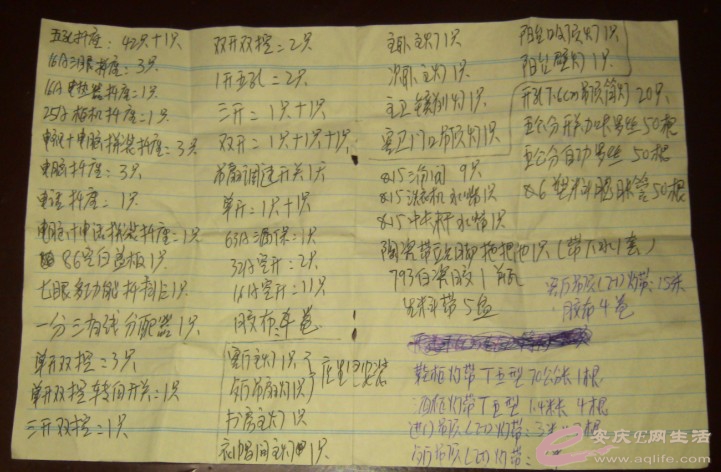 五孔插座：42只+1只
16A三眼插座：3只
16A电热器插座：1只
25A柜机插座=1只
电视+电脑插座=3只
电脑插座：3只
电话插座：1只
电脑+电话插座=1只
86空白盖板：1只
七眼多功能插1只
一分三有线分配器1只
单开双控=3只
单开双控转向开关=1只
三开双控=1只
双开双控=2只
1开五孔=2只
三开=1只+1只
双开=1只+1只+1只
吊扇调速开关1只
单开=1只+1只
63A漏保：1只
32A空开=2只
16A空开=11只
胶布=卷
客厅主灯1只
吊扇灯1只
店里包安装
书房主灯1只
衣帽间主灯1只
主卧主灯1只
次卧主灯1只
主卫镜前灯1只
客卫门口吊顶灯1只
&15三角阀 9只
&15洗衣机水嘴1只
&15水嘴1只
陶瓷带立脚拖把池1只（带下水1套）
793白瓷胶1瓶
生料带5盘
阳台吸顶灯1只
阳台壁灯1只
开孔7.6cm吊顶筒灯20只
五公分开刀口木螺丝50根
五公分自攻螺丝50根
&6塑料膨胀管50根
客厅吊顶(LED)灯带：15米
胶布4卷
鞋柜灯带T五型70公分长1根
酒柜灯带T五型1.4米长4根
进门吊顶(LED)灯带：3米
吊顶(LED)灯带：
安庆E网生活
www.aqlife.com